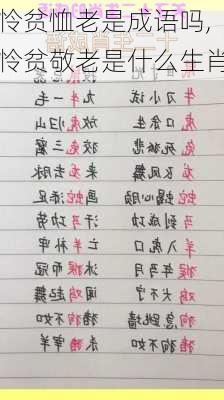 怜贫恤老是成语吗,
怜贫敬老是什么生肖
牛刀小试 九牛一毛
虎口余生 放虎归山
兔死狐悲 狡兔三窟
龙飞凤舞 来龙去脉
蛇蝎心肠 画蛇添足
马到成功 汗马功劳
羊入虎口 亡羊补牢
猴年马月 沐猴而冠
鸡犬不宁 闻鸡起舞
狗急跳墙 猪狗不如
猪狗不如 杀猪宰羊